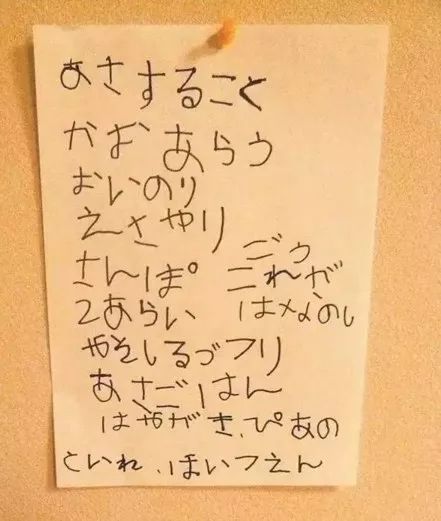 あさすること
かおあらう
おいのり
えさやり
さんぽ ごう
これが
2あらい はみ
やそしるづフリ
あさごはん
はやがき、ぴあの
といれ、ほいつえん